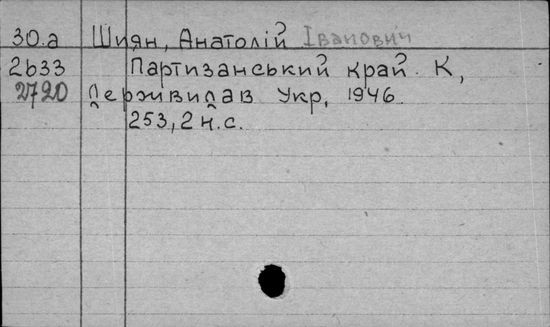 30.а Шиян, Анатолій Іванович
2633 Партизанський край. К,
2720 Держвидав Укр, 1946.
253, 2 н.с.